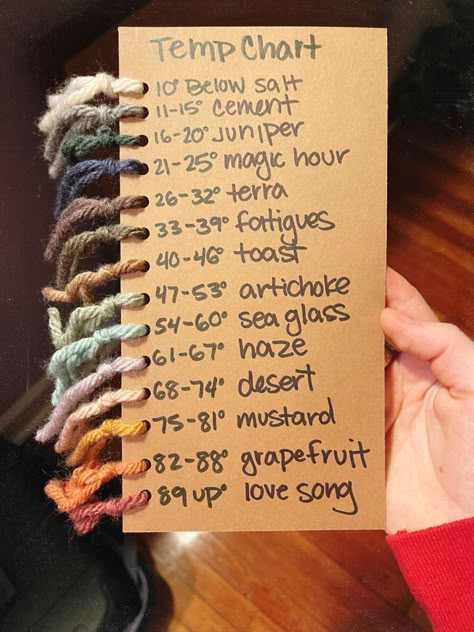 Temp Chart
10° Below salt
11-15° cement
16-20° Juniper
21-25° magic hour
26-32° terra
33-39° fatigues
40-46° toast
47-53° artichoke
54-60° sea glass
61-67° haze
68-74° desert
75-81° mustard
82-88° grapefruit
89 up° love song